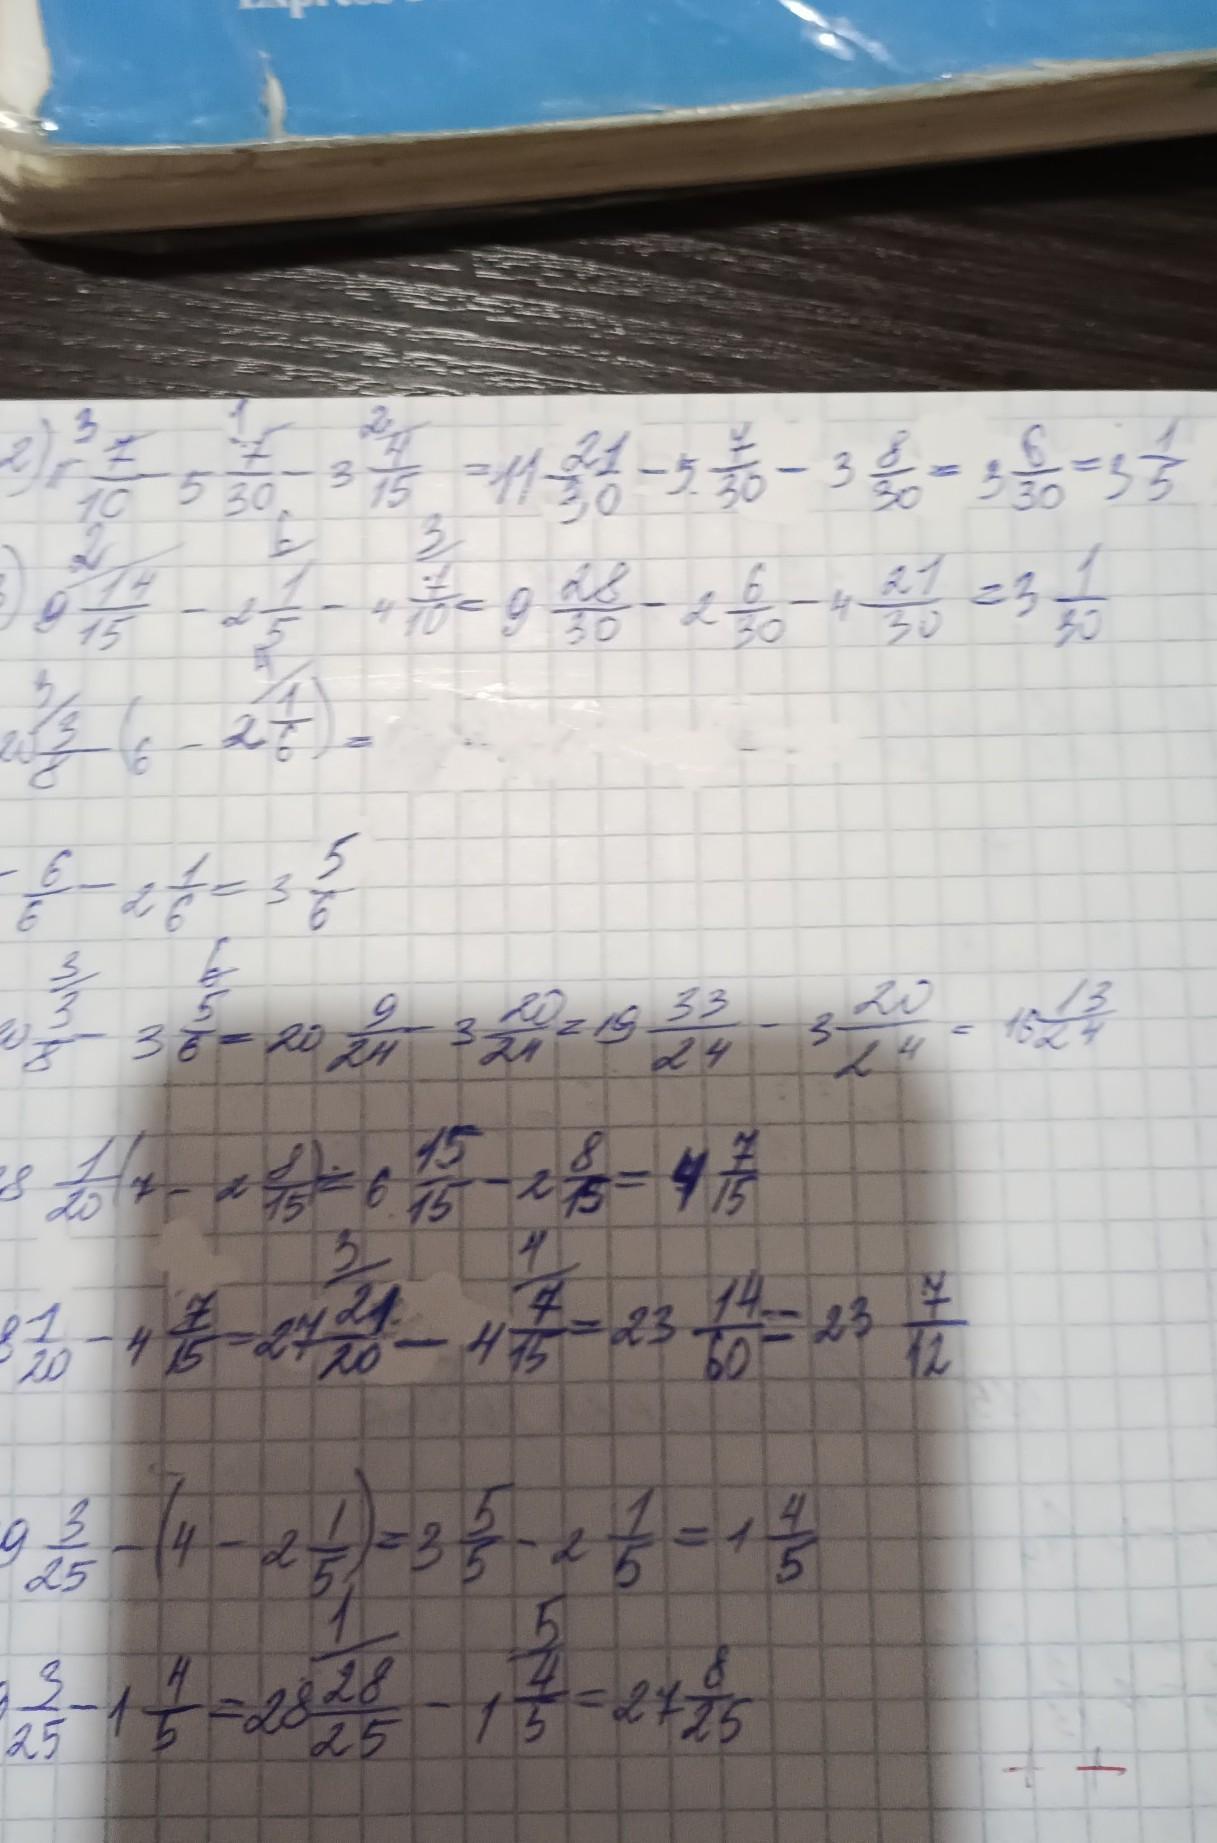 Express
2) 11 7/10 - 5 7/30 - 3 4/15 = 11 21/30 - 5 7/30 - 3 8/30 = 3 6/30 = 3 1/5
) 9 14/15 - 2 1/5 - 4 7/10 = 9 28/30 - 2 6/30 - 4 21/30 = 3 1/30
20 3/8 - (6 - 2 1/6) =
- 6/6 - 2 1/6 = 3 5/6
20 3/8 - 3 5/6 = 20 9/24 - 3 20/24 = 19 33/24 - 3 20/24 = 16 13/24
28 1/20 (7 - 2 8/15) = 6 15/15 - 2 8/15 = 4 7/15
8 1/20 - 4 7/15 = 27 21/20 - 4 7/15 = 23 14/60 = 23 7/12
9 3/25 - (4 - 2 1/5) = 3 5/5 - 2 1/5 = 1 4/5
9 3/25 - 1 4/5 = 28 28/25 - 1 4/5 = 27 8/25